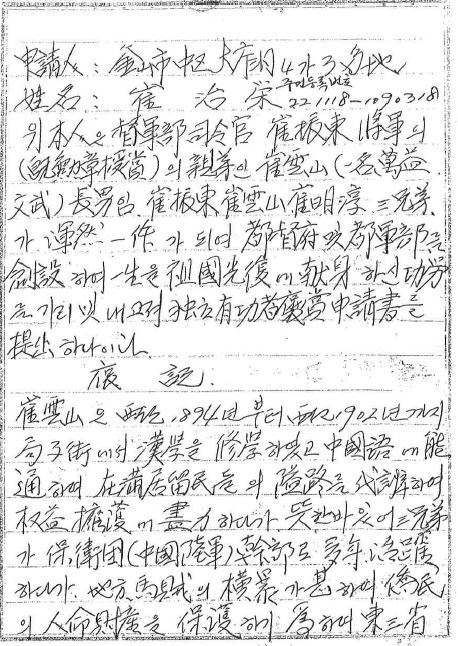 申請人：釜山市中区大庁洞4가3多地
姓名：崔治栄 주민등록번호
221118-1090318
위 本人은 督軍部司令官 崔振東 將軍의
(勲章授賞)의 親弟인 崔雲山(一名萬益
文武)長男임. 崔振東崔雲山崔明淳 三兄弟
가 渾然一体가 되여 都督府 및 都軍部를
創設하여 一生을 祖國光復에 献身하신 功労
를 기리 빛내고저 独立有功者褒賞申請書를
提出하나이다
崔雲山은 西紀1894년부터 西紀1902년까지
局子街에서 漢学을 修学하였고 中國語에 能
通하여 在満居留民들의 隘路를 代訳하여
权益擁護에 盡力하다가 뜻한바 있어 三兄弟
가 保衛団(中國陸軍)幹部로 多年 活躍
하다가 地方馬賊의 横暴가 甚하여 僑民
의 人命財産을 保護하기 爲하여 東三省